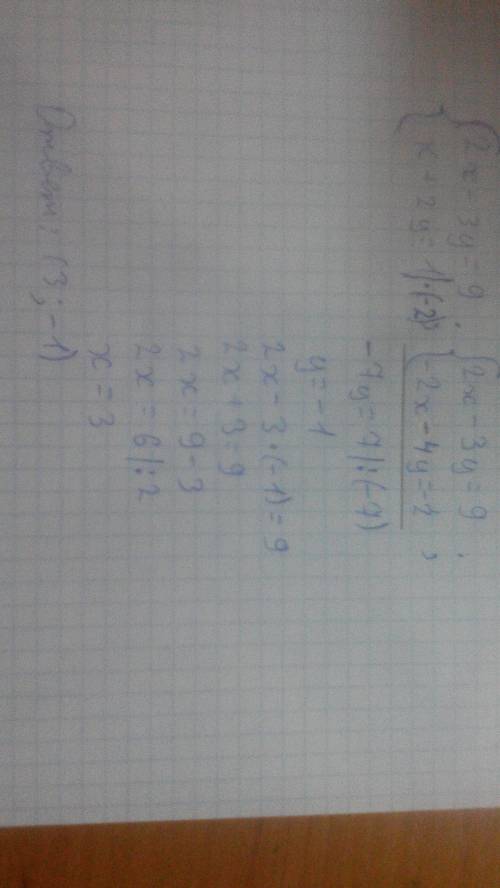 {2x - 3y = 9 ; {2x - 3y = 9 ;
{x + 2y = 1 |·(-2) {-2x - 4y = -2 ,
-7y = 7 |:(-7)
y = -1
2x - 3·(-1) = 9
2x + 3 = 9
2x = 9 - 3
2x = 6 |:2
x = 3
Ответ: (3; -1)